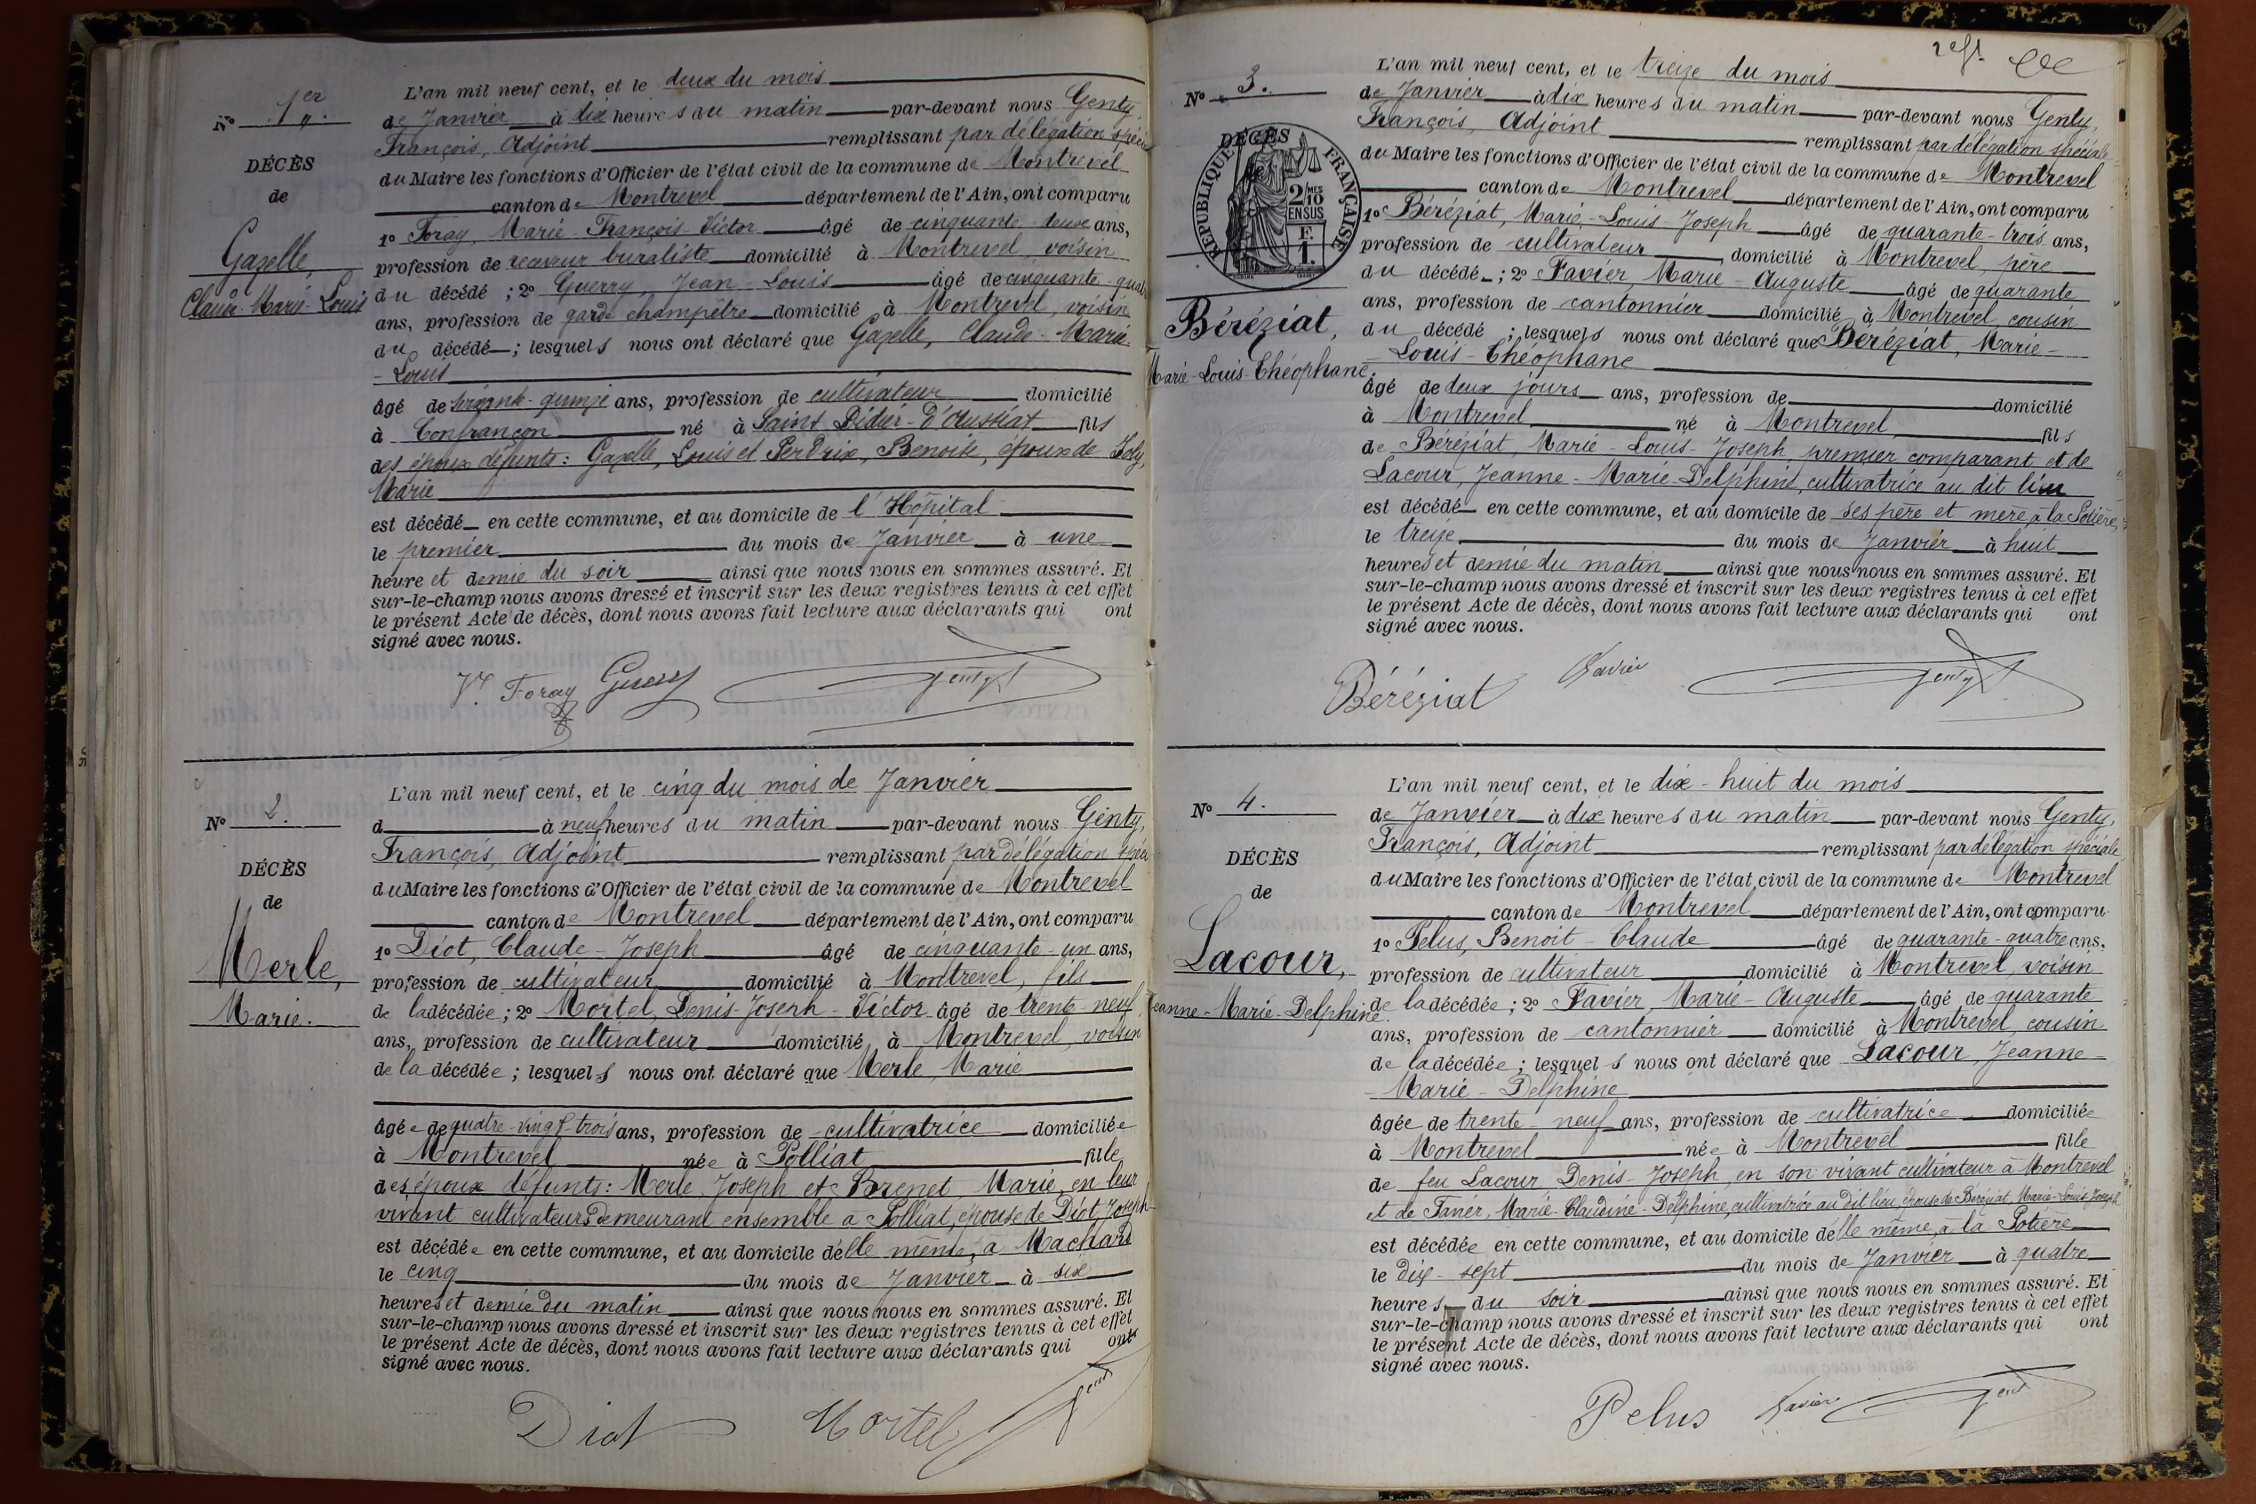 No 1er
DÉCÈS
de
Gazelle,
Claude-Marie-Louis
L'an mil neuf cent, et le deux du mois
de Janvier à dix heures du matin par-devant nous Genty,
François, Adjoint remplissant par délégation spéci
du Maire les fonctions d'Officier de l'état civil de la commune de Montrevel
canton de Montrevel département de l'Ain, ont comparu
1o Foray, Marie-François-Victor âgé de cinquante-deux ans,
profession de receveur buraliste domicilié à Montrevel, voisin
du décédé ; 2o Guerry, Jean-Louis âgé de cinquante-quatre
ans, profession de garde champêtre domicilié à Montrevel, voisin
du décédé ; lesquels nous ont déclaré que Gazelle, Claude-Marie-
-Louis
âgé de soixante-quinze ans, profession de cultivateur domicilié
à Confrançon né à Saint Didier-D'Aussiat fils
des époux défunts : Gazelle, Louis et Perdrix, Benoite, époux de Joly,
Marie
est décédé en cette commune, et au domicile de l'Hôpital
le premier du mois de Janvier à une
heure et demie du soir ainsi que nous nous en sommes assuré. Et
sur-le-champ nous avons dressé et inscrit sur les deux registres tenus à cet effet
le présent Acte de décès, dont nous avons fait lecture aux déclarants qui ont
signé avec nous.
Vr Foray Guerry Genty
No 2.
DÉCÈS
de
Merle,
Marie.
L'an mil neuf cent, et le cinq du mois de Janvier
d à neuf heures du matin par-devant nous Genty,
François, Adjoint remplissant par délégation spéci
du Maire les fonctions d'Officier de l'état civil de la commune de Montrevel
canton de Montrevel département de l'Ain, ont comparu
1o Diot, Claude-Joseph âgé de cinquante-un ans,
profession de cultivateur domicilié à Montrevel, fils
de la décédée ; 2o Mortel, Denis-Joseph-Victor âgé de trente-neuf
ans, profession de cultivateur domicilié à Montrevel, voisin
de la décédée ; lesquels nous ont déclaré que Merle, Marie
âgée de quatre-vingt-trois ans, profession de cultivatrice domiciliée
à Montrevel née à Polliat fille
des époux défunts : Merle, Joseph et Brenet, Marie, en leur
vivant cultivateurs demeurant ensemble à Polliat, épouse de Diot, Joseph
est décédée en cette commune, et au domicile d'elle même, à Machard
le cinq du mois de Janvier à six
heures et demie du matin ainsi que nous nous en sommes assuré. Et
sur-le-champ nous avons dressé et inscrit sur les deux registres tenus à cet effet
le présent Acte de décès, dont nous avons fait lecture aux déclarants qui ont
signé avec nous.
Diot Mortel Genty
No 3.
DÉCÈS
RÉPUBLIQUE FRANÇAISE
2 MES
10
EN SUS
F.
1.
Béréziat,
Marie-Louis-Théophane.
L'an mil neuf cent, et le treize du mois
de Janvier à dix heures du matin par-devant nous Genty,
François, Adjoint remplissant par délégation spéciale
du Maire les fonctions d'Officier de l'état civil de la commune de Montrevel
canton de Montrevel département de l'Ain, ont comparu
1o Béréziat, Marie-Louis-Joseph âgé de quarante-trois ans,
profession de cultivateur, domicilié à Montrevel, père
du décédé ; 2o Favier, Marie-Auguste âgé de quarante
ans, profession de cantonnier domicilié à Montrevel cousin
du décédé ; lesquels nous ont déclaré que Béréziat, Marie-
-Louis-Théophane
âgé de deux jours ans, profession de domicilié
à Montrevel né à Montrevel fils
de Béréziat, Marie-Louis-Joseph, premier comparant et de
Lacour, Jeanne-Marie-Delphine, cultivatrice au dit lieu
est décédé en cette commune, et au domicile de ses père et mère, à la Potière,
le treize du mois de Janvier à huit
heures et demie du matin ainsi que nous nous en sommes assuré. Et
sur-le-champ nous avons dressé et inscrit sur les deux registres tenus à cet effet
le présent Acte de décès, dont nous avons fait lecture aux déclarants qui ont
signé avec nous.
Béréziat Favier Genty
No 4.
DÉCÈS
de
Lacour,
Jeanne-Marie-Delphine.
L'an mil neuf cent, et le dix-huit du mois
de Janvier à dix heures du matin par-devant nous Genty,
François, Adjoint remplissant par délégation spéciale
du Maire les fonctions d'Officier de l'état civil de la commune de Montrevel
canton de Montrevel département de l'Ain, ont comparu
1o Pelus, Benoit-Claude âgé de quarante-quatre ans,
profession de cultivateur domicilié à Montrevel, voisin
de la décédée ; 2o Favier, Marie-Auguste âgé de quarante
ans, profession de cantonnier domicilié à Montrevel, cousin
de la décédée ; lesquels nous ont déclaré que Lacour, Jeanne-
-Marie-Delphine
âgée de trente-neuf ans, profession de cultivatrice domiciliée
à Montrevel née à Montrevel fille
de feu Lacour, Denis-Joseph, en son vivant cultivateur à Montrevel
et de Marie-Claudine-Delphine, cultivatrice au dit lieu, épouse de Béréziat, Marie-Louis-Joseph
est décédée en cette commune, et au domicile d'elle même, à la Potière
le dix-sept du mois de Janvier à quatre
heures du soir ainsi que nous nous en sommes assuré. Et
sur-le-champ nous avons dressé et inscrit sur les deux registres tenus à cet effet
le présent Acte de décès, dont nous avons fait lecture aux déclarants qui ont
signé avec nous.
Pelus Favier Genty